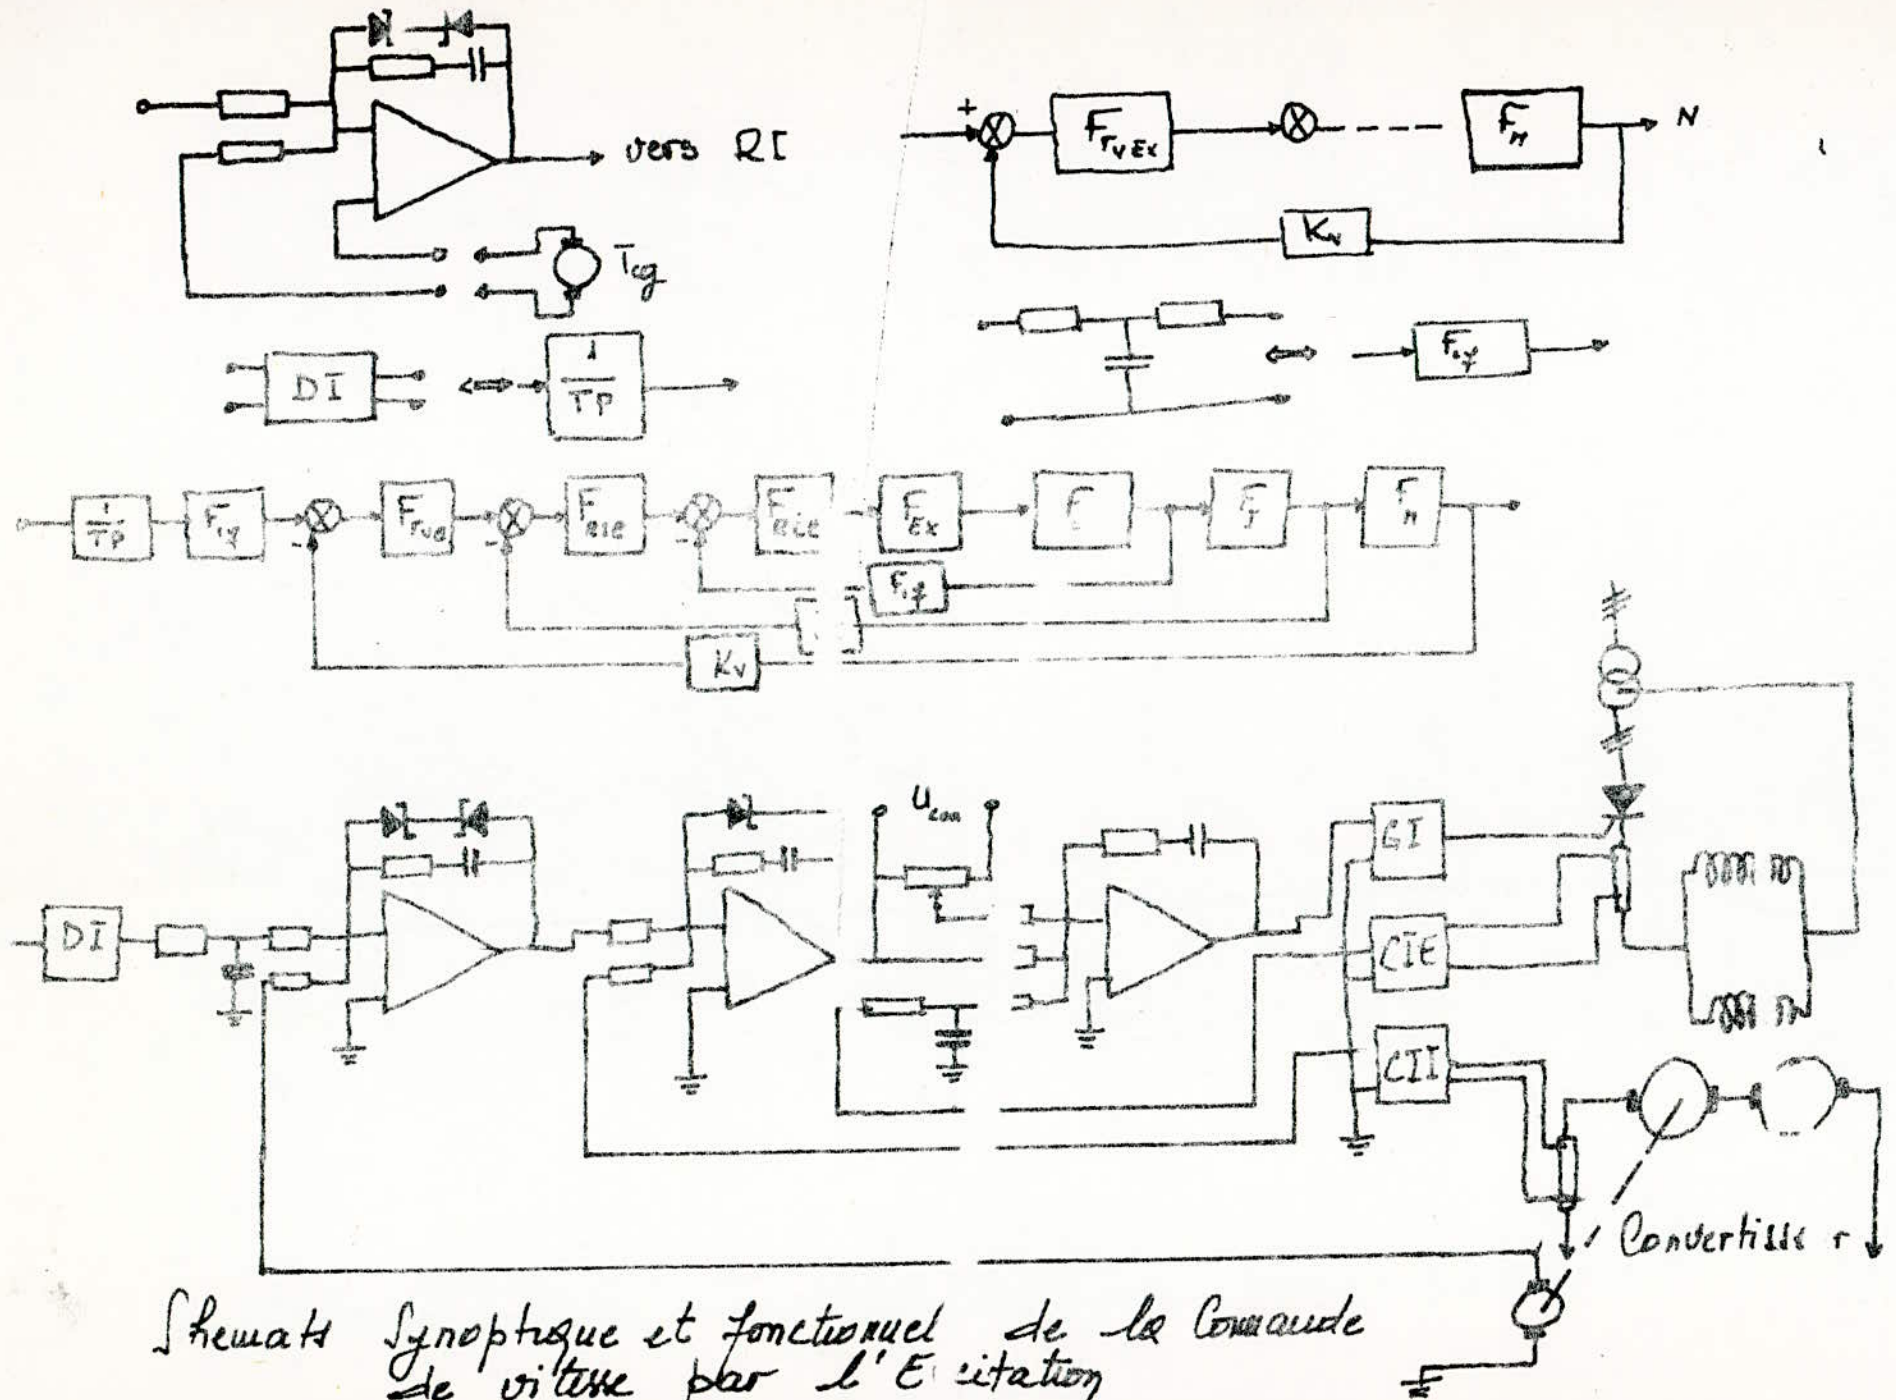 vers RI
+
F_TvEx
F_M
N
K_v
Tcg
DI
1
TP
F_if
1
TP
F_if
F_Tve
F_RIE
F_Rie
F_Ex
F
F_I
F_M
-
-
-
F_if
K_v
U_con
GI
DI
CIE
CII
Convertiss r
Shemats Synoptique et fonctionnel de la Commande
de vitesse par l'E citation